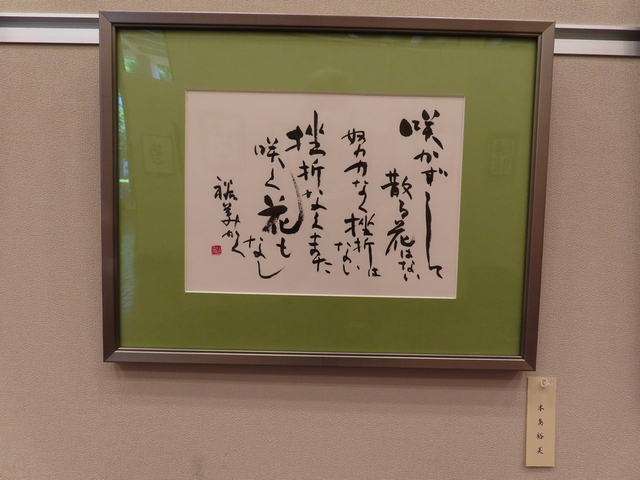 咲かずして
散る花はない
努力なく挫折は
ない
挫折なくまた
咲く花も
なし
裕美かく
木島裕美